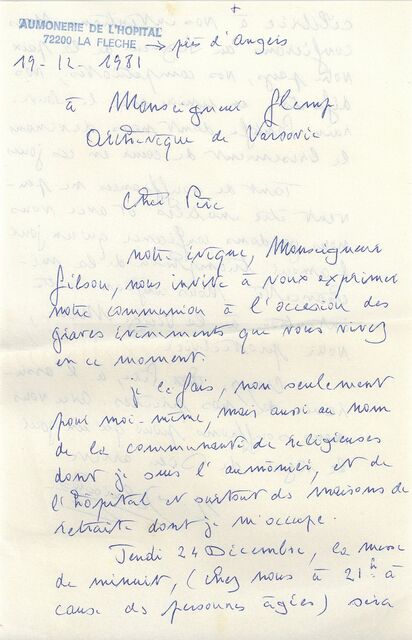 +
AUMONERIE DE L'HOPITAL
72200 LA FLECHE → près d'Angers
19-12-1981
à Monseigneur Glemp
Archevêque de Varsovie
Cher Père
notre évêque, Monseigneur
Gilson, nous invite à vous exprimer
notre communion à l'occasion des
graves évènements que vous vivez
en ce moment.
je le fais, non seulement
pour moi-même, mais aussi au nom
de la communauté de religieuses
dont je suis l'aumônier, et de
l'hôpital et surtout des maisons de
retraite dont je m'occupe.
Jeudi 24 Décembre, la messe
de minuit, (chez nous à 21h à
cause des personnes âgées) sera